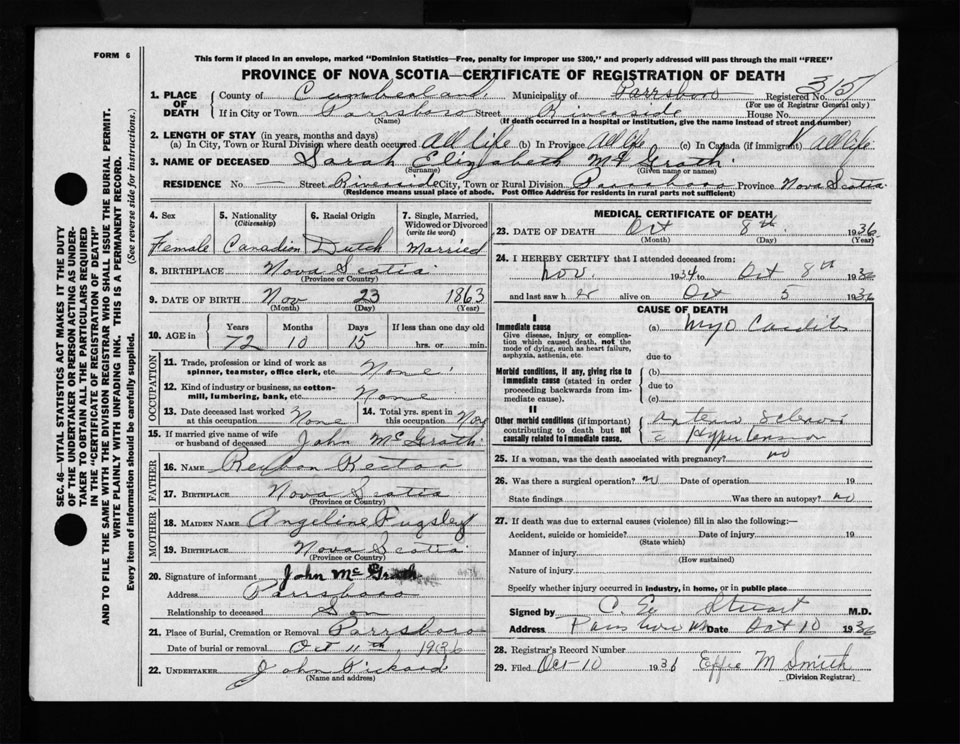 FORM 6
This form if placed in an envelope, marked "Dominion Statistics—Free, penalty for improper use $300," and properly addressed will pass through the mail "FREE"
PROVINCE OF NOVA SCOTIA—CERTIFICATE OF REGISTRATION OF DEATH
1. PLACE OF DEATH County of Cumberland Municipality of Parrsboro Registered No.
(For use of Registrar General only)
If in City or Town Parrsboro Street Riverside House No.
(Name) (If death occurred in a hospital or institution, give the name instead of street and number)
2. LENGTH OF STAY (in years, months and days)
(a) In City, Town or Rural Division where death occurred All life (b) In Province All life (c) In Canada (if immigrant) All life
3. NAME OF DECEASED Sarah Elizabeth Mc Grath
(Surname) (Given name or names)
RESIDENCE No. — Street Riverside City, Town or Rural Division Parrsboro Province Nova Scotia
(Residence means usual place of abode. Post Office Address for residents in rural parts not sufficient)
4. Sex 5. Nationality (Citizenship) 6. Racial Origin 7. Single, Married, Widowed or Divorced (write the word)
Female Canadian Dutch Married
8. BIRTHPLACE Nova Scotia
(Province or Country)
9. DATE OF BIRTH Nov 23 1863
(Month) (Day) (Year)
10. AGE in Years Months Days If less than one day old
72 10 15 hrs. or min.
OCCUPATION
11. Trade, profession or kind of work as spinner, teamster, office clerk, etc. None
12. Kind of industry or business, as cotton-mill, lumbering, bank, etc. None
13. Date deceased last worked at this occupation None 14. Total yrs. spent in this occupation None
15. If married give name of wife or husband of deceased John Mc Grath
FATHER
16. NAME
17. BIRTHPLACE Nova Scotia
(Province or Country)
MOTHER
18. MAIDEN NAME Angeline Pugsley
19. BIRTHPLACE Nova Scotia
(Province or Country)
20. Signature of informant John Mc Grath
Address Parrsboro
Relationship to deceased Son
21. Place of Burial, Cremation or Removal Parrsboro
Date of burial or removal Oct 11th, 1936
22. UNDERTAKER John Pickard
(Name and address)
MEDICAL CERTIFICATE OF DEATH
23. DATE OF DEATH Oct 8th 1936
(Month) (Day) (Year)
24. I HEREBY CERTIFY that I attended deceased from:
Nov. 1934 to Oct 8th 1936
and last saw her alive on Oct 5 1936
CAUSE OF DEATH
I
Immediate cause (a) Myo Carditis
Give disease, injury or complication which caused death, not the mode of dying, such as heart failure, asphyxia, asthenia, etc.
due to
Morbid conditions, if any, giving rise to immediate cause (stated in order proceeding backwards from immediate cause).
(b)
due to
(c)
II
Other morbid conditions (if important) contributing to death but not causally related to immediate cause.
Arterio Sclerosis
c Hypertension
25. If a woman, was the death associated with pregnancy? no
26. Was there a surgical operation? no Date of operation 19
State findings Was there an autopsy? no
27. If death was due to external causes (violence) fill in also the following:—
Accident, suicide or homicide? Date of injury 19
(State which)
Manner of injury
(How sustained)
Nature of injury
Specify whether injury occurred in industry, in home, or in public place
Signed by Stuart M.D.
Address Parrsboro NS Date Oct 10 1936
28. Registrar's Record Number
29. Filed Oct-10 1936 Effie M Smith
(Division Registrar)
SEC. 46—VITAL STATISTICS ACT MAKES IT THE DUTY
OF THE UNDERTAKER OR PERSON ACTING AS UNDER-
TAKER TO OBTAIN ALL THE PARTICULARS REQUIRED
IN THE "CERTIFICATE OF REGISTRATION OF DEATH"
AND TO FILE THE SAME WITH THE DIVISION REGISTRAR WHO SHALL ISSUE THE BURIAL PERMIT.
WRITE PLAINLY WITH UNFADING INK. THIS IS A PERMANENT RECORD.
Every item of information should be carefully supplied. (See reverse side for instructions.)